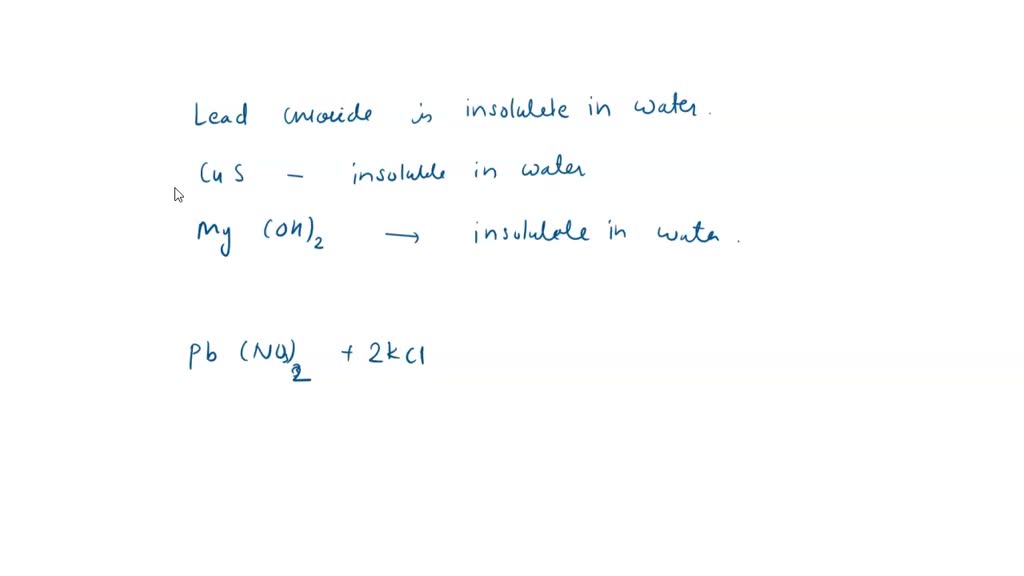 Lead chloride is insoluble in water.
CuS - insoluble in water
Mg (OH)₂ → insoluble in water.
Pb (NO₃)₂ + 2KCl